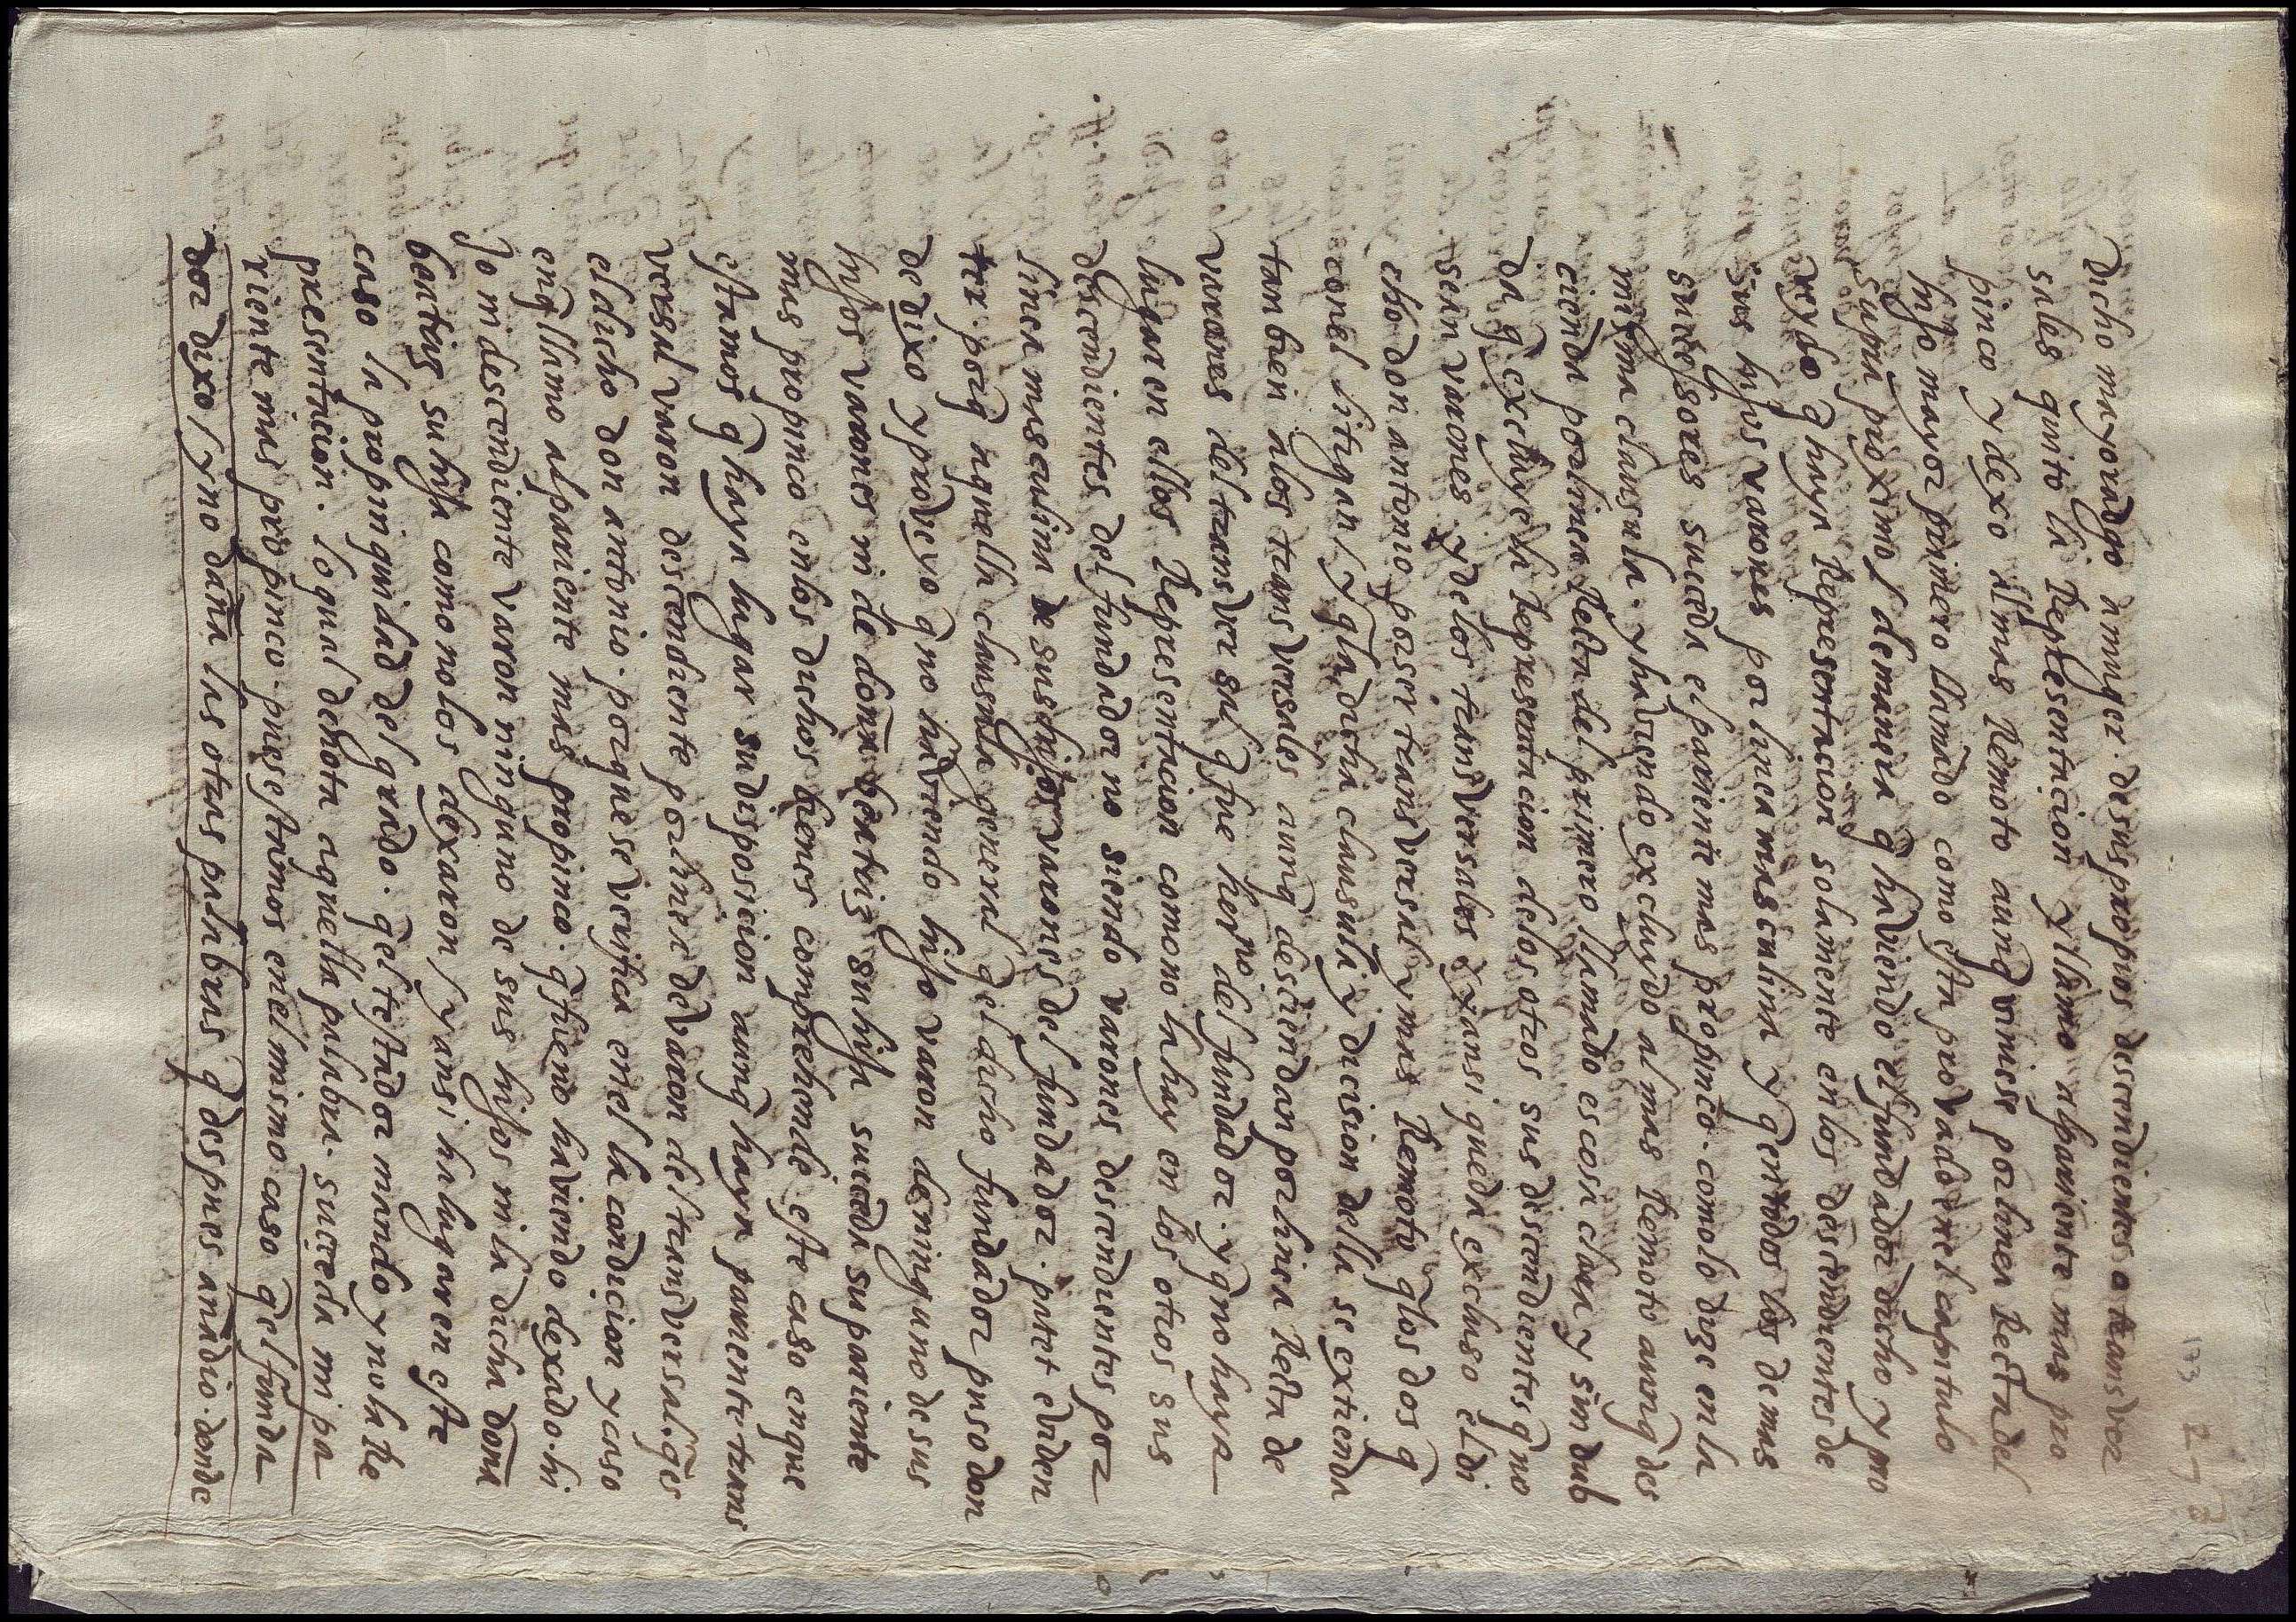 173
273
Dicho mayoradgo a muger de sus propios descendientes o transver
sales quito la Representacion y llamo al pariente mas pro
pinco y dexo al mas Remoto aunq viniese por linea Recta del
hijo mayor primero llamado como esta provado en el capitulo
supra proximo / de manera q haviendo el fundador dicho y pro
veydo q haya Representacion solamente en los descendientes de
sus hijos varones por linea masculina y q en todos los demas
sucesores suceda el pariente mas propinco. como lo dize en la
misma clausula. y haviendo excluydo al mas Remoto aunq des
cienda por linea Recta del primero llamado es cosa clara y sin dub
da q excluye la Representacion de los otros sus descendientes q no
sean varones y de los transversales y ansi queda excluso el di
cho don antonio por ser transversal y mas Remoto q los dos q
con el litigan / y q la dicha clausula y decision della se extienda
tan bien a los transversales aunq desciendan por linea Recta de
varones del transversal q fue her.no del fundador. y q no haya
lugar en ellos Representacion como no la hay en los otros sus
descendientes del fundador no siendo varones descendientes por
linea masculina de sus hijos varones del fundador. patet eviden
ter. porq aquella clausula general q el dicho fundador puso don
de dixo y proveyo q no haviendo hijo varon de ninguno de sus
hijos varones ni de doña beatriz su hija suceda su pariente
mas propinco en los dichos bienes comprehende este caso en que
estamos q haya lugar su disposicion aunq haya pariente trans
versal varon descendiente por linea de varon del transversal. q es
el dicho don antonio. porque se verifica en el la condicion y caso
en q llamo al pariente mas propinco. q fue no haviendo dexado hi
jo ni descendiente varon ninguno de sus hijos ni la dicha doña
beatriz su hija como no los dexaron / y ansi ha lugar en este
caso la propinquidad del grado. q el testador mando y no la Re
presentacion. lo qual denota aquella palabra. suceda mi pa
riente mas propinco. pues estamos en el mismo caso q el funda
dor dixo / y no daña las otras palabras q despues añadio. donde